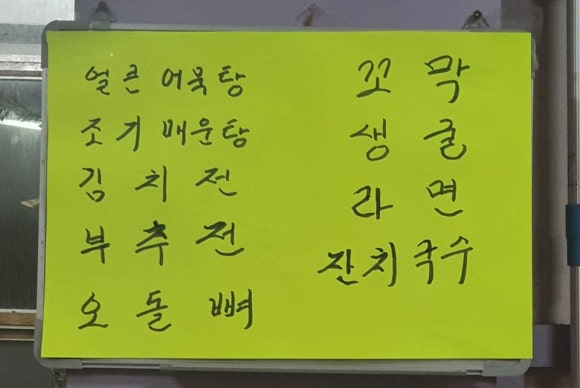 얼큰 어묵탕
조기 매운탕
김치전
부추전
오돌뼈
꼬막
생굴
라면
잔치국수